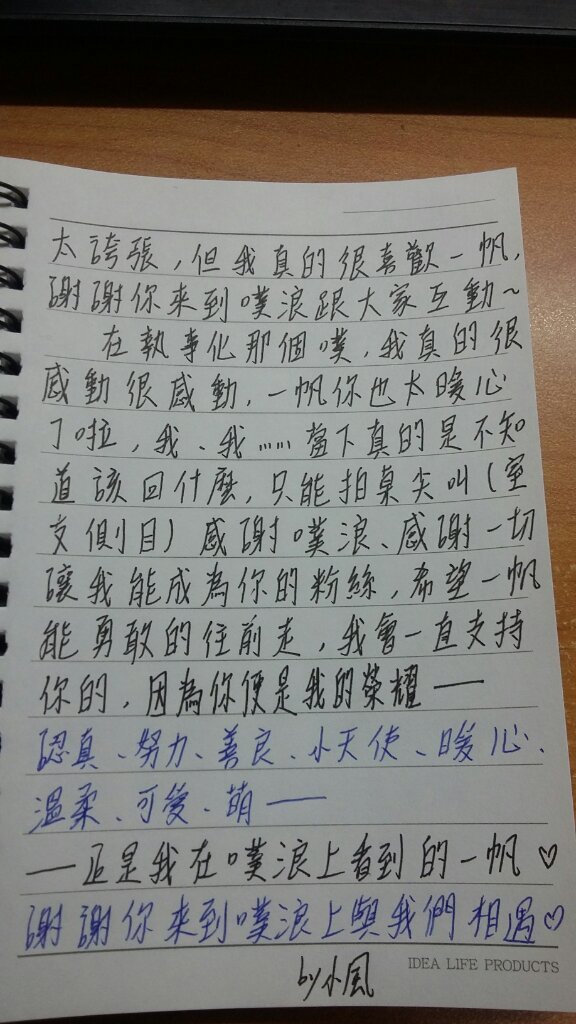 太誇張，但我真的很喜歡一帆，
謝謝你來到噗浪跟大家互動~
在執事化那個噗，我真的很
感動很感動，一帆你也太暖心
了啦，我、我……當下真的是不知
道該回什麼，只能拍桌尖叫(室
友側目)感謝噗浪、感謝一切
讓我能成為你的粉絲，希望一帆
能勇敢的往前走，我會一直支持
你的，因為你便是我的榮耀——
認真、努力、善良、小天使、暖心、
溫柔、可愛、萌——
——正是我在噗浪上看到的一帆♡
謝謝你來到噗浪上與我們相遇♡
by小風
IDEA LIFE PRODUCTS